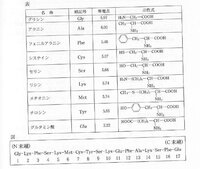 表
名 称 略記号 等電点 示性式
グリシン Gly 5.97 H₂N-CH₂-COOH
アラニン Ala 6.00 CH₃-CH-COOH
NH₂
フェニルアラニン Phe 5.48 CH₂-CH-COOH
NH₂
システイン Cys HS-CH₂-CH-COOH
NH₂
セリン Ser 5.68 HO-CH₂-CH-COOH
NH₂
リシン Lys 9.74 H₂N-(CH₂)₄-CH-COOH
NH₂
メチオニン Met 5.74 CH₃-S-(CH₂)₂-CH-COOH
NH₂
チロシン Tyr HO- CH₂-CH-COOH
NH₂
グルタミン酸 Glu 3.22 HOOC-(CH₂)₂-CH-COOH
NH₂
図
(N 末端) (C 末端)
Gly-Lys-Phe-Ser-Lys-Met-Cys-Tyr-Ser-Lys-Glu-Phe-Ala-Lys-Ser-Phe-Glu
1 2 3 4 5 6 7 8 9 10 11 12 13 14 15 16 17